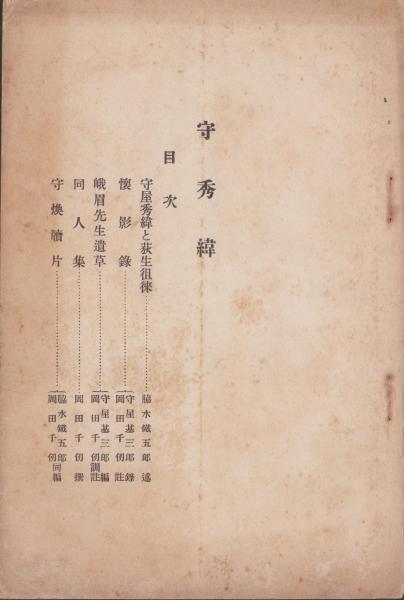 守秀緯
目次
守屋秀緯と荻生徂徠……………脇水鐵五郎述
懷影錄……………守屋基三郎錄 岡田千仭註
峨眉先生遺草……………守屋基三郎編 岡田千仭訓註
同人集……………岡田千仭撰
守煥牘片……………脇水鐵五郎 岡田千仭同編